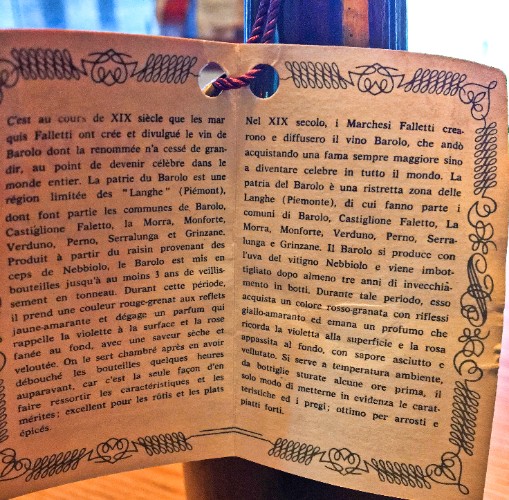 C'est au cours de XIX siècle que les mar
quis Falletti ont crée et divulgué le vin de
Barolo dont la renommée n'a cessé de gran-
dir, au point de devenir célèbre dans le
monde entier. La patrie du Barolo est une
région limitée des "Langhe" (Piémont),
dont font partie les communes de Barolo,
Castiglione Falletto, la Morra, Monforte,
Verduno, Perno, Serralunga et Grinzane.
Produit à partir du raisin provenant des
ceps de Nebbiolo, le Barolo est mis en
bouteilles jusqu'à au moins 3 ans de veillis-
sement en tonneau. Durant cette période,
il prend une couleur rouge-grenat aux reflets
jaune-amarante et dégage un parfum qui
rappelle la violette à la surface et la rose
fanée au fond, avec une saveur sèche et
veloutée. On le sert chambré après en avoir
débouché les bouteilles quelques heures
auparavant, car c'est la seule façon d'en
faire ressortir les caractéristiques et les
mérites; excellent pour les rôtis et les plats
épicés.
Nel XIX secolo, i Marchesi Falletti crea-
rono e diffusero il vino Barolo, che andò
acquistando una fama sempre maggiore sino
a diventare celebre in tutto il mondo. La
patria del Barolo è una ristretta zona delle
Langhe (Piemonte), di cui fanno parte i
comuni di Barolo, Castiglione Falletto, La
Morra, Monforte, Verduno, Perno, Serra-
lunga e Grinzane. Il Barolo si produce con
l'uva del vitigno Nebbiolo e viene imbot-
tigliato dopo almeno tre anni di invecchia-
mento in botti. Durante tale periodo, esso
acquista un colore rosso-granata con riflessi
giallo-amaranto ed emana un profumo che
ricorda la violetta alla superficie e la rosa
appassita al fondo, con sapore asciutto e
vellutato. Si serve a temperatura ambiente,
da bottiglie sturate alcune ore prima, il
solo modo di metterne in evidenza le carat-
teristiche ed i pregi; ottimo per arrosti e
piatti forti.